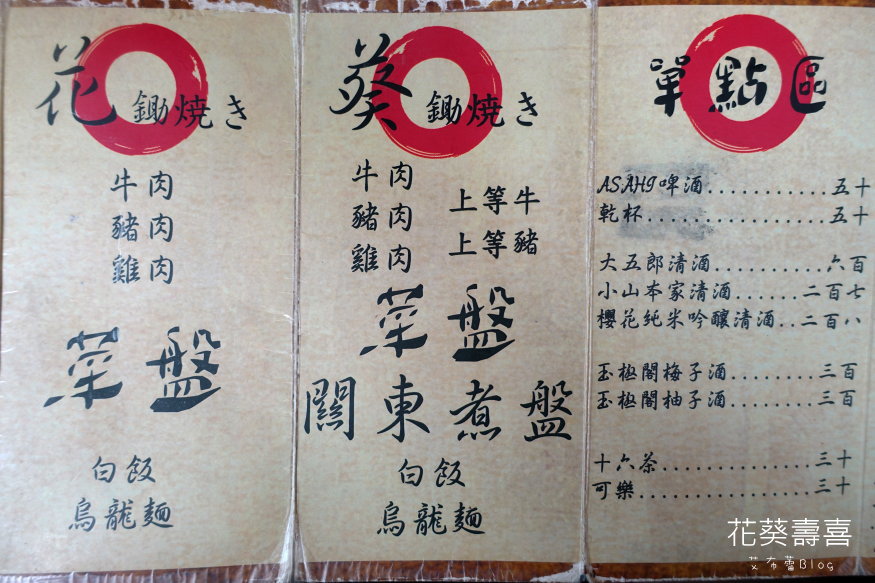 花 鋤焼き
牛肉
豬肉
雞肉
菜盤
白飯
烏龍麵
葵 鋤焼き
牛肉
豬肉
雞肉
上等牛
上等豬
菜盤
關東煮盤
白飯
烏龍麵
單點區
ASAHI啤酒............五十
乾杯................五十
大五郎清酒..........六百
小山本家清酒......二百七
櫻花純米吟釀清酒..二百八
玉極閣梅子酒........三百
玉極閣柚子酒........三百
十六茶.............三十
可樂...............三十
花葵壽喜
艾布蕾Blog